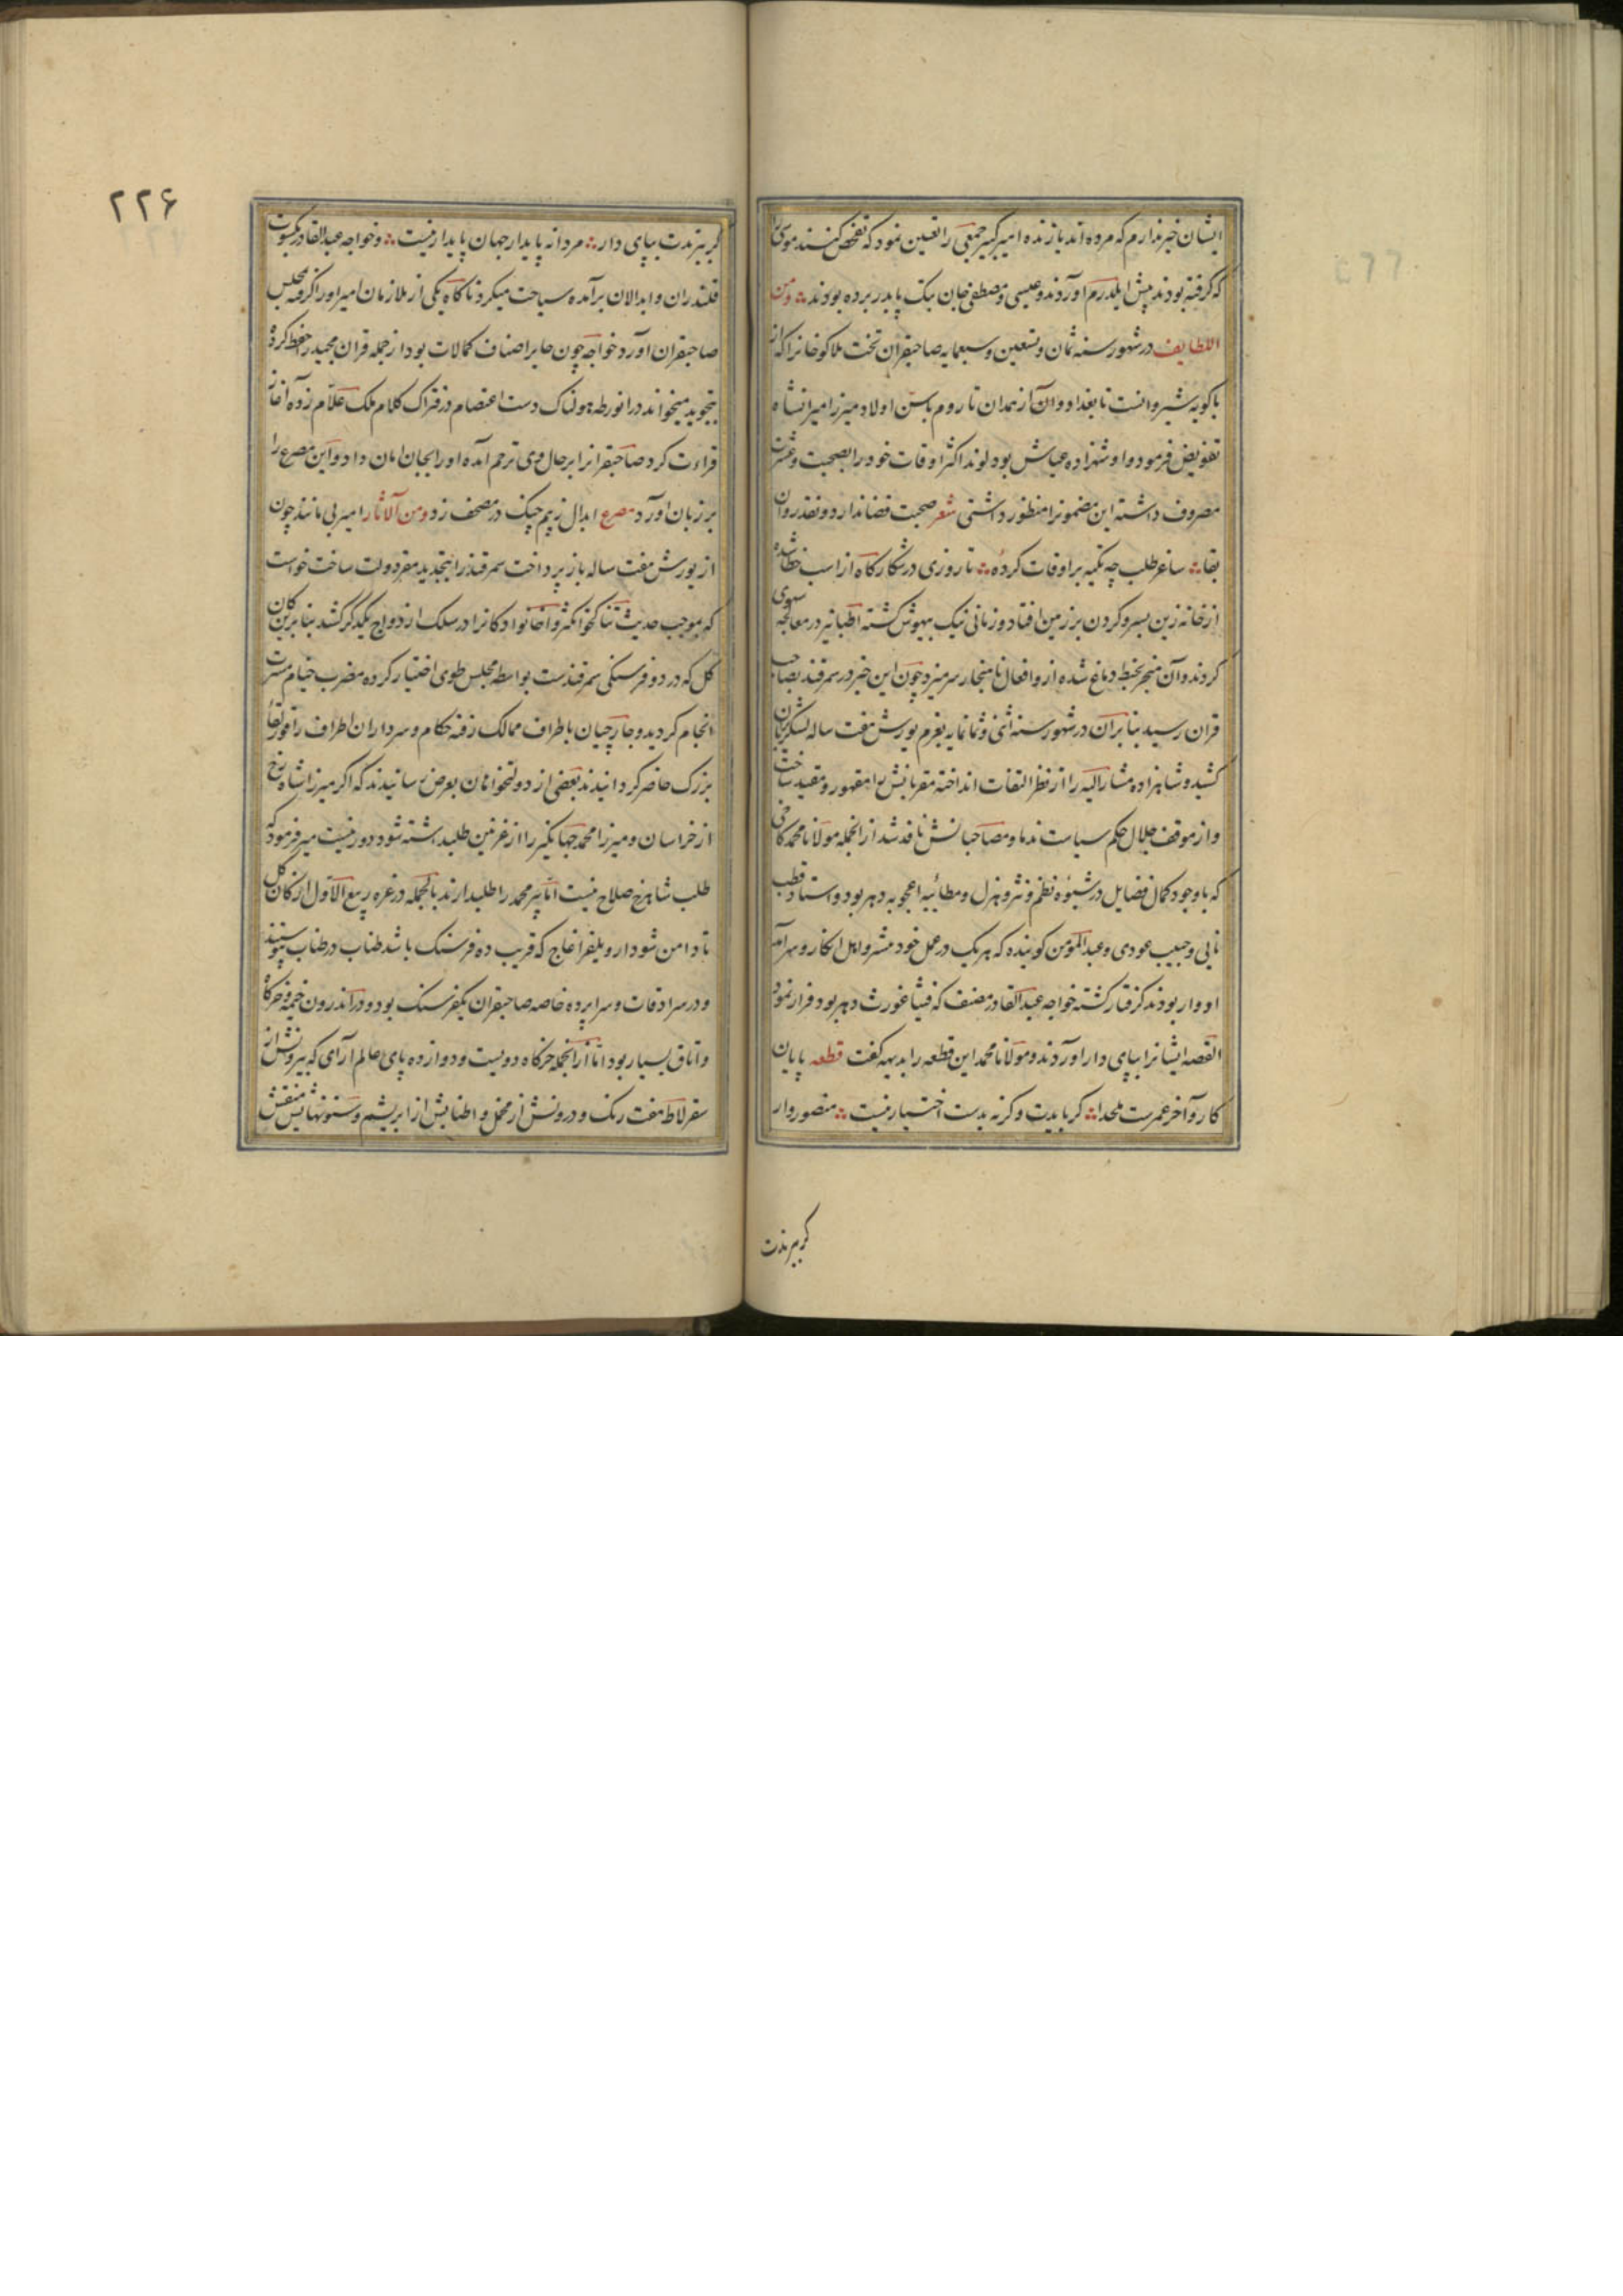 ایشان خبر ندارم که مرده اند یا زنده امیر کبیر جمعی را تعیین نمود که تفحص کنند موسی را
که گرفته بودند پیش ایلدرم آوردند و عیسی و مصطفی جان بیک پای بدر برده بودند ومن
اللطایف در شهور سنه ثمان و تسعین و سبعمایه صاحبقران تخت هلاکو خانرا که از
باکویه شیروانست تا بغداد و آن از همدان تا روم باسن اولاد میرزا میرانشاه
تفویض فرمود و او شهزاده عیاش بود لوند اکثر اوقات خود را بصحبت و عشرت
مصروف داشته این مضمونرا منظور داشتی شعر صحبت قضا ندارد و نقد روان
بقا ساغر طلب چه تکیه بر اوقات کرده تا روزی در شکارگاه از اسب خطا شده
از خانه زین بسر و گردن بر زمین افتاد و زمانی نیک بیهوش گشته اطبا نیز در معالجه سهوی
کردند و آن منجر بخبط دماغ شده از و افعال ناهنجار سر میزد چون این خبر در سمرقند بصاحب
قران رسید بنابران در شهور سنه اثنی و ثمانمایه بعزم یورش هفت ساله لشکر بایران
کشید و شاهزاده مشار الیه را از نظر التفات انداخته مقربانش را مقهور و مقید ساخت
و از موقف جلال حکم سیاست ندما و مصاحبانش نافذ شد از انجمله مولانا محمد کاخی
که با وجود کمال فضایل در شیوه نظم و نثر و هزل و مطائبه اعجوبه دهر بود و استاد قطب
نایی و حبیب عودی و عبدالمؤمن گوینده که هر یک در عمل خود مشرو اهل انکار و سر آمد
ادوار بودند گرفتار گشته خواجه عبدالقادر مصنف که فیثاغورث دهر بود فرار نمود
القصه ایشانرا بپای دار آوردند و مولانا محمد این قطعه را بدیهه گفت قطعه پایان
کار و آخر عمرست ملحدا گر بایدت و گر نه بدست اختیار نیست منصوروار
گر ببرندت
۲۲۶
گر ببرندت بپای دار مردانه پایدار جهان پایدار نیست و خواجه عبدالقادر بکسوت
قلندران و ابدالان برآمده سیاحت میکرد ناگاه یکی از ملازمان امیر او را گرفته بمجلس
صاحبقران آورد خواجه چون حایر اصناف کمالات بود از جمله قران مجید را حفظ کرده
بتجوید میخواند در انورطه هولناک دست اعتصام در فتراک کلام ملک علام زده آغاز
قراءت کرد صاحبقرانرا بر حال وی ترحم آمده او را بجان امان داد و این مصرع را
بر زبان آورد مصرع ابدال ز بیم چنگ در مصحف زد ومن الآثار امیر بی مانند چون
از یورش هفت ساله باز پرداخت سمرقند را بتجدید مقر دولت ساخت خواست
که بموجب حدیث تناکحوا تکثروا خانوادگانرا در سلک ازدواج یکدیگر کشد بنابرین کان
گل که در دو فرسنگی سمرقندست بواسطه مجلس طوی اختیار کرده مضرب خیام مسرت
انجام گردید و جارچیان باطراف ممالک رفته حکام و سرداران اطراف را قورلتا
بزرگ حاضر گردانیدند بعضی از دولتخواهان بعرض رسانیدند که اگر میرزا شاهرخ
از خراسان و میرزا محمد جهانگیر را از غزنین طلبداشته شود دور نیست میر فرمود که
طلب شاهرخ صلاح نیست اما پیر محمد را طلبدارند بالجمله در غره ربیع الاول از کان گل
تا دامن شودار و یلغز اغاج که قریب ده فرسنگ باشد طناب در طناب پیوستند
و در سرادقات و سراپرده خاصه صاحبقران یکفرسنگ بود و در اندرون خیمه و خرگاه
و اتاق بسیار بود اما از انجمله خرگاه دویست و دوازده پای عالم آرای که بیرونش از
سقرلاط هفت رنگ و درونش از مخمل و اطنابش از ابریشم و ستونهایش منقش